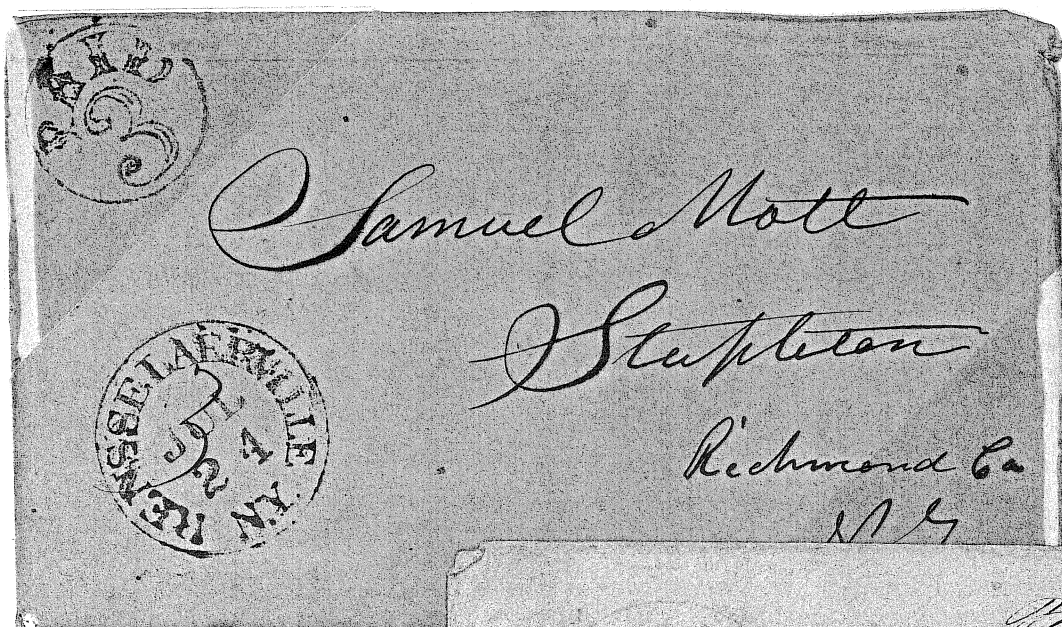 PAID
3
Samuel Mott
Stapleton
Richmond Co
N Y
RENSSELAERVILLE N.Y
JUL
24